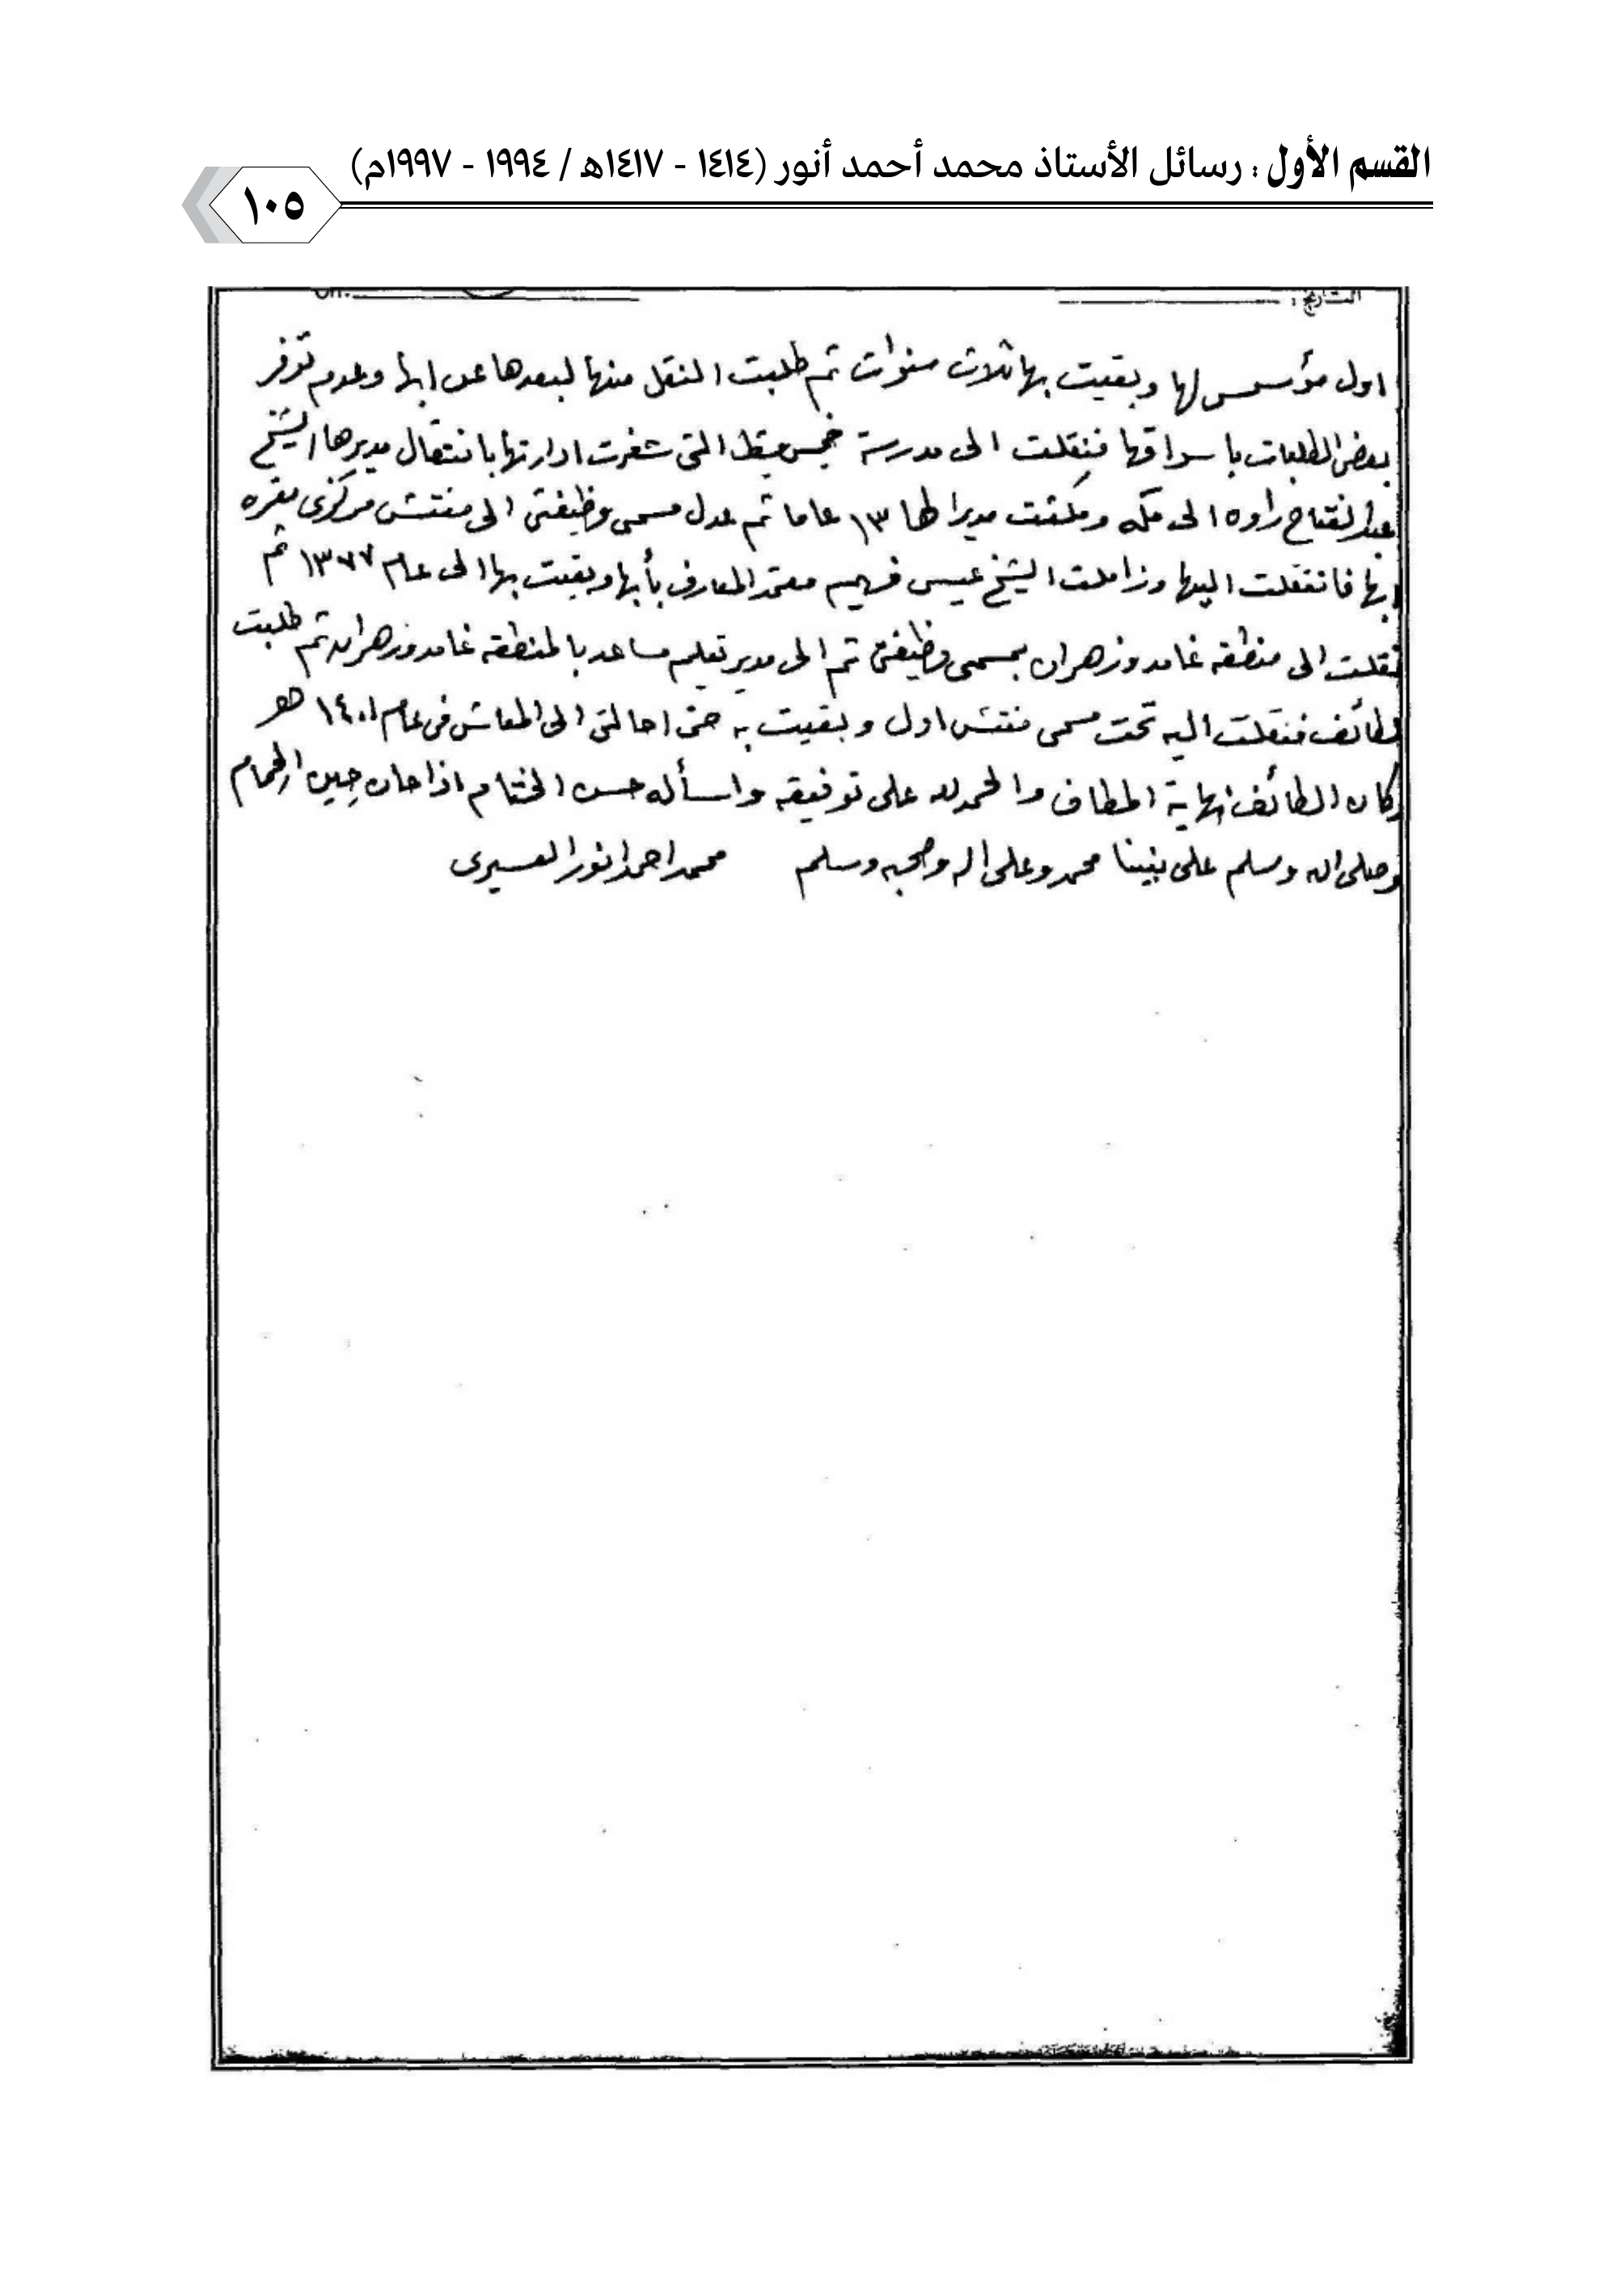 القسم الأول : رسائل الأستاذ محمد أحمد أنور (١٤١٤ - ١٤١٧هـ / ١٩٩٤ - ١٩٩٧م)
١٠٥
التاريخ :
اول مؤسس لها وبقيت بها ثلاث سنوات ثم طلبت النقل منها لبعدها عن ابها وعدم توفر
بعض الطلبات باسواقها فنقلت الى مدرسة خميس مشيط التى شغرت ادارتها بانتقال مديرها الشيخ
عبدالفتاح راوه الى مكه ومكثت مديرا لها ١٣ عاما ثم عدل مسمى وظيفتى الى مفتش مركزى مقره
ابها فانتقلت اليها وزاملت الشيخ عيسى فهيم معتمد المعارف بأبها وبقيت بها الى عام ١٣٧٧ ثم
نقلت الى منطقه غامد وزهران بمسمى وظيفتى ثم الى مدير تعليم مساعد بالمنطقه غامد وزهران ثم طلبت
الطائف فنقلت اليه تحت مسمى مفتش اول وبقيت به حتى احالتى الى المعاش فى عام ١٤٠١ هـ
وكان الطائف نهاية المطاف والحمد لله على توفيقه واسأله حسن الختام اذا حان حِين الحِمام
وصلى الله وسلم على نبينا محمد وعلى اله وصحبه وسلم محمد احمد انور العسيرى